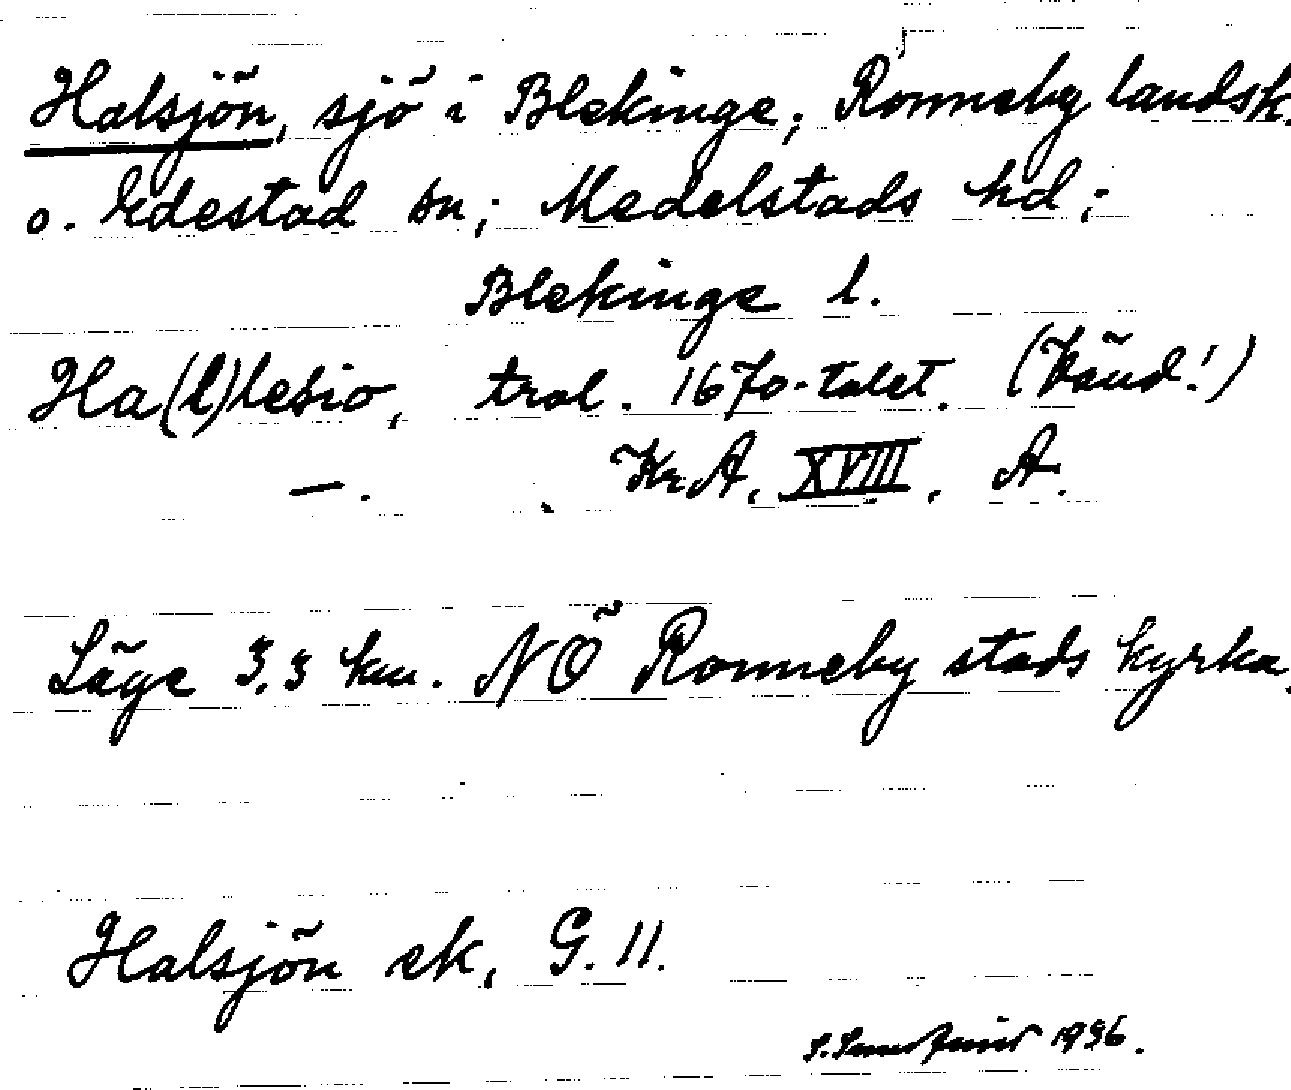 Halsjön, sjö i Blekinge; Ronneby landsk.
o. Edestad sn; Medelstads hd;
Blekinge l.
Ha(l)lesio, trol. 1670-talet. (Känd!)
—. KrA, XVIII, A.
Läge 3,3 km. NÖ Ronneby stads kyrka.
Halsjön ek, G. 11.
1936.